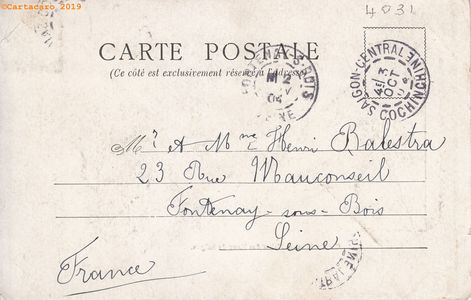 ©Cartacaro_2019
4031
CARTE POSTALE
(Ce côté est exclusivement réservé à l'adresse)
SAIGON-CENTRAL
OCT
COCHINCHINE
FONTENAY-S-BOIS
04
Mr et Mme Henri Balestra
23 Rue Mauconseil
Fontenay-sous-Bois
Seine
France